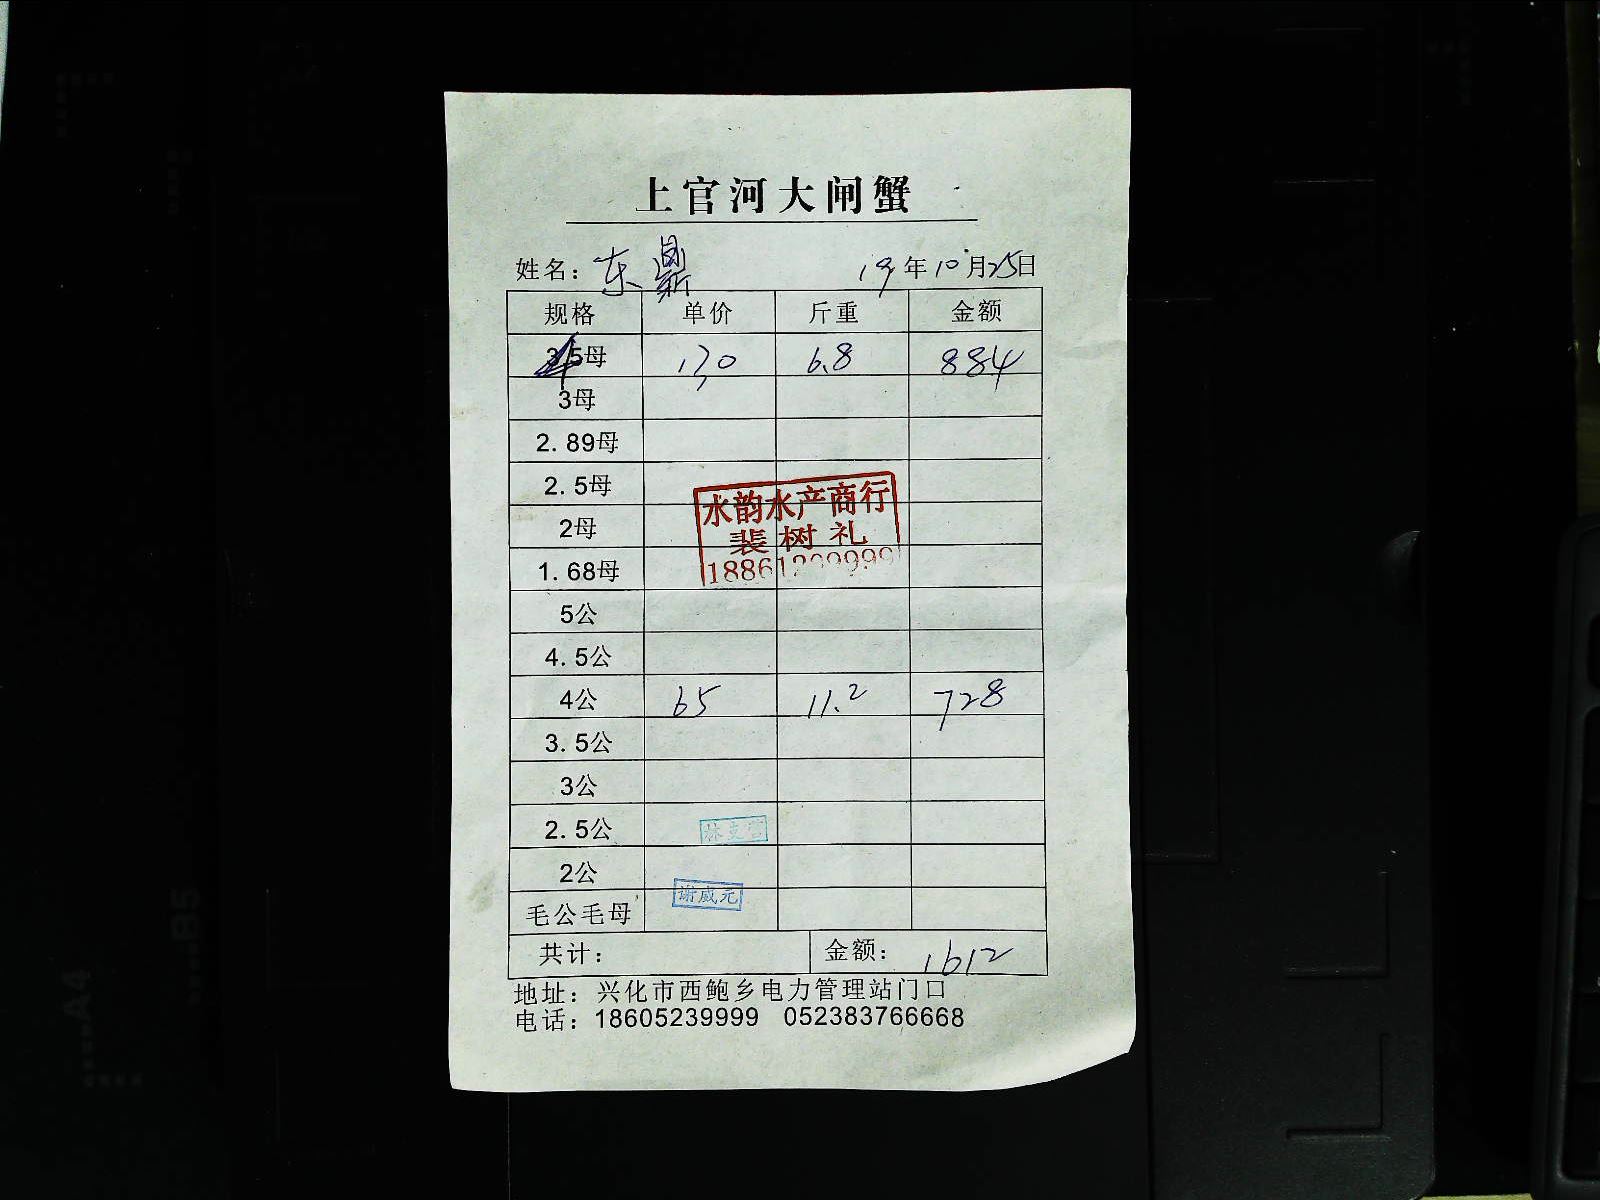 上官河大闸蟹
姓名：东鼎 19年10月25日
规格 单价 斤重 金额
4母 130 6.8 884
3母
2.89母
2.5母
2母
1.68母
5公
4.5公
4公 65 11.2 728
3.5公
3公
2.5公
2公
毛公毛母
共计： 金额：1612
地址：兴化市西鲍乡电力管理站门口
电话：18605239999 052383766668
水韵水产商行
裴树礼
谢威元